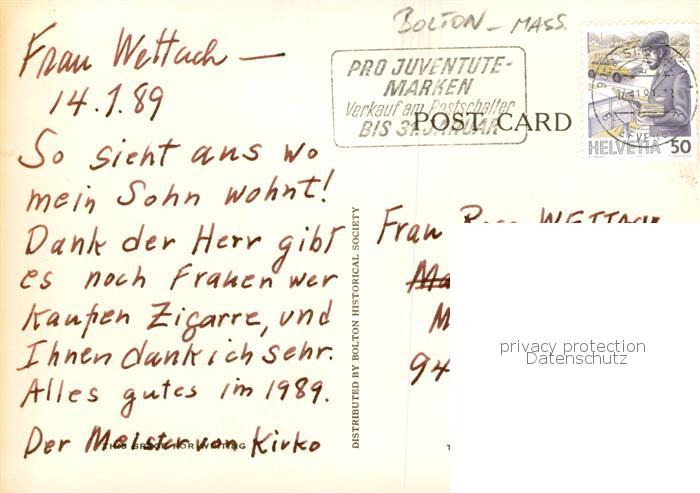 BOLTON - MASS.
Frau Wettach —
14.1.89
So sieht aus wo
mein Sohn wohnt!
Dank der Herr gibt
es noch Frauen wer
kaufen Zigarre, und
Ihnen dank ich sehr.
Alles gutes im 1989.
Der Meister von Kirko
THIS SPACE FOR WRITING
DISTRIBUTED BY BOLTON HISTORICAL SOCIETY
PRO JUVENTUTE-
MARKEN
Verkauf am Postschalter
BIS 31. JANUAR
POST CARD
HELVETIA 50
Frau Rosa WETTACH
Ma
M
94
privacy protection
Datenschutz